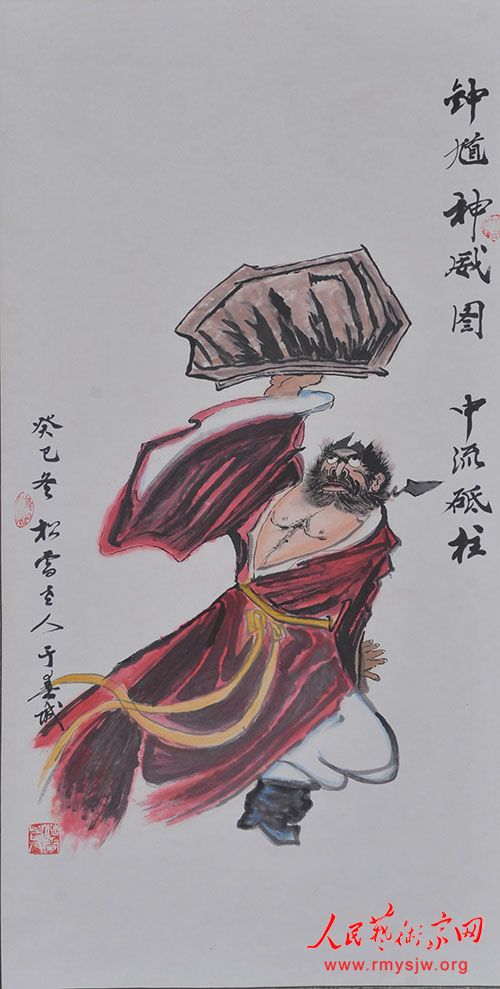 钟馗神威图 中流砥柱
癸巳冬松雪主人于春城
人民艺术家网
www.rmysjw.org